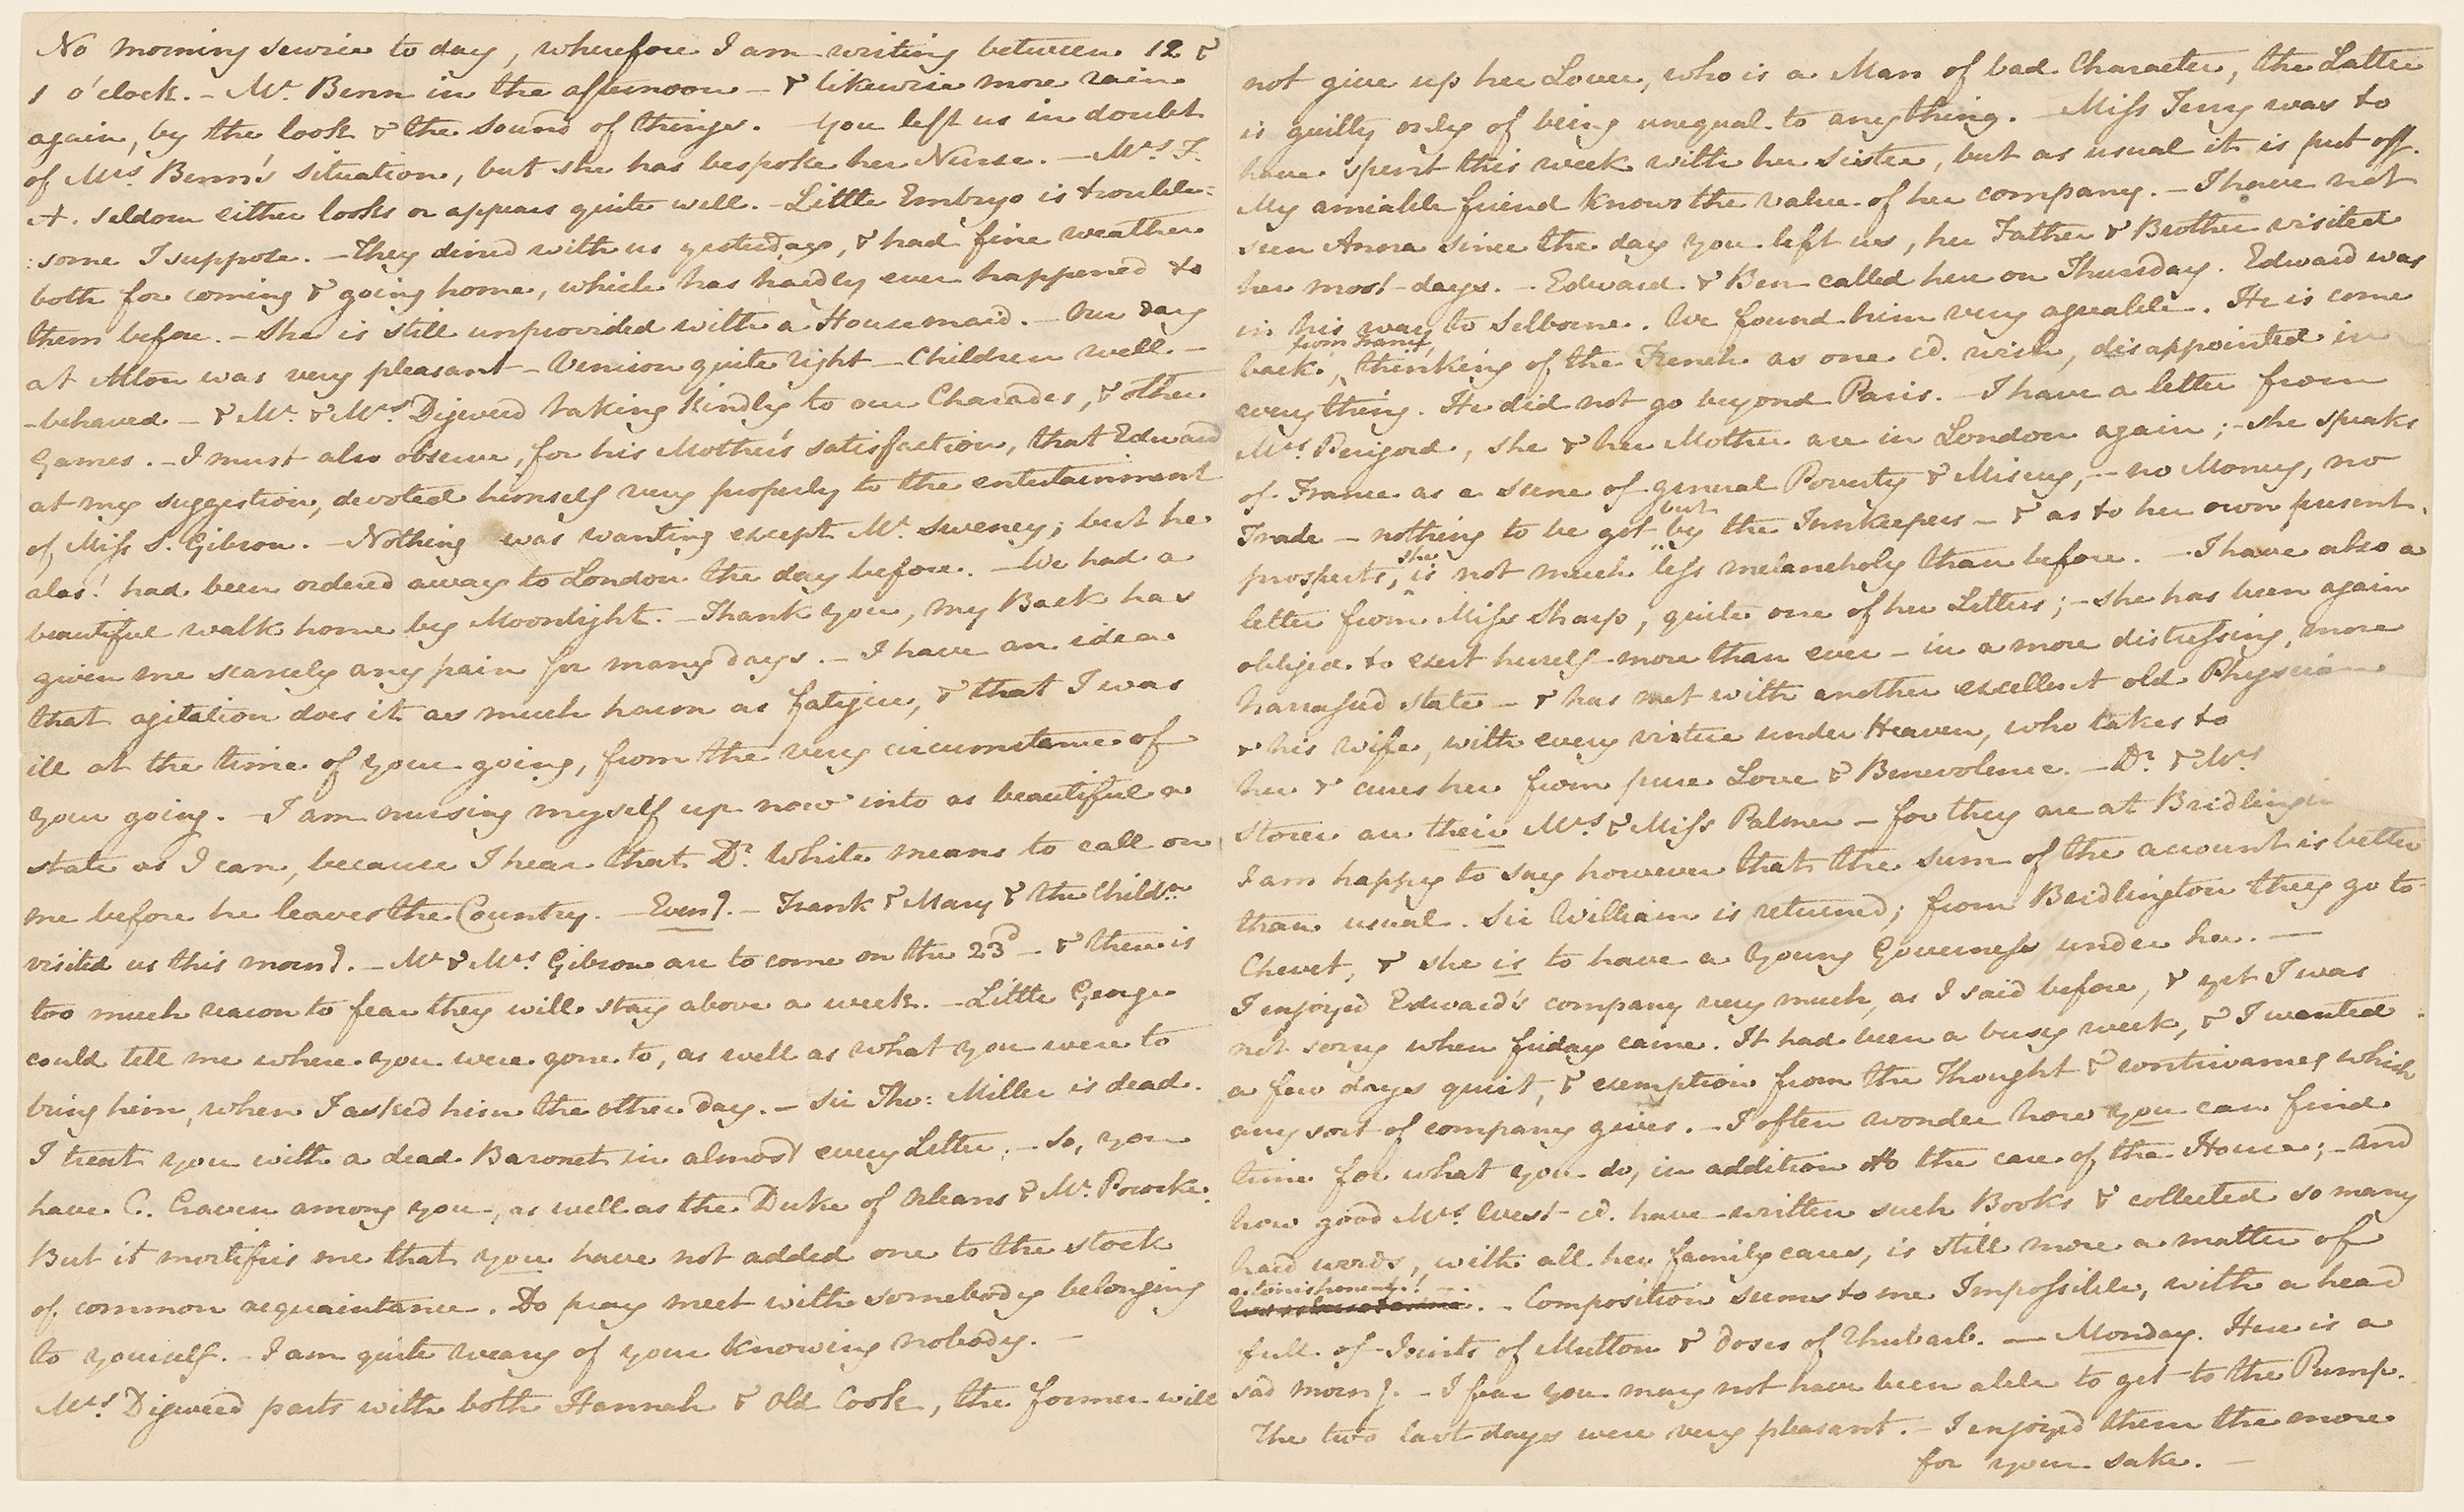 No morning service to day, wherefore I am writing between 12 &
1 o'clock. – Mr. Benn in the afternoon – & likewise more rain
again, by the look & the sound of things. You left us in doubt
of Mrs. Benn's situation, but she has bespoke her Nurse. – Mrs. F.
A. seldom either looks or appears quite well. – Little Embryo is trouble=
:some I suppose. – They dined with us yesterday, & had fine weather
both for coming & going home, which has hardly ever happened to
them before. – She is still unprovided with a Housemaid. – Our day
at Alton was very pleasant – Venison quite right – Children well-
-behaved – & Mr. & Mrs. Digweed taking kindly to our Charades, & other
Games. – I must also observe, for his Mother's satisfaction, that Edward
at my suggestion, devoted himself very properly to the entertainment
of Miss S. Gibson. – Nothing was wanting except Mr. Sweney; but he
alas! had been ordered away to London the day before. – We had a
beautiful walk home by Moonlight. – Thank you, my Back has
given me scarcely any pain for many days. – I have an idea
that agitation does it as much harm as fatigue, & that I was
ill at the time of your going, from the very circumstance of
your going. – I am nursing myself up now into as beautiful a
state as I can, because I hear that Dr. White means to call on
me before he leaves the Country. – Eveng. – Frank & Mary & the Childn
visited us this morng. – Mr. & Mrs. Gibson are to come on the 23d – & there is
too much reason to fear they will stay above a week. – Little George
could tell me where you were gone to, as well as what you were to
bring him, when I asked him the other day. – Sir Tho: Miller is dead.
I treat you with a dead Baronet in almost every Letter. – So, you
have C. Craven among you, as well as the Duke of Orleans & Mr. Pocock.
But it mortifies me that you have not added one to the stock
of common acquaintance. Do pray meet with somebody belonging
to yourself. – I am quite weary of your knowing nobody. –
Mrs. Digweed parts with both Hannah & old Cook, the former will
not give up her Lover, who is a Man of bad Character, the Latter
is guilty only of being unequal to anything. – Miss Terry was to
have spent this week with her Sister, but as usual it is put off.
My amiable friend knows the value of her company. – I have not
seen Anna since the day you left us, her Father & Brother visited
her most days. – Edward & Ben called here on Thursday. Edward was
in his way to Selborne. We found him very agreable. He is come
from France,
back, thinking of the French as one cd. wish, disappointed in
everything. He did not go beyond Paris. – I have a letter from
Mrs. Perigord, she & her Mother are in London again; – she speaks
of France as a scene of general Poverty & Misery, – no Money, no
but
Trade – nothing to be got by the Innkeepers – & as to her own present
she
prospects, is not much less melancholy than before. – I have also a
letter from Miss Sharp, quite one of her Letters; – she has been again
obliged to exert herself – more than ever – in a more distressing, more
harrassed state – & has met with another excellent old Physician
& his Wife, with every virtue under Heaven, who takes to
her & cures her from pure Love & Benevolence. – Dr. & Mrs.
Storer are their Mrs. & Miss Palmer – for they are at Bridlington
I am happy to say however that the sum of the account is better
than usual. Sir William is returned; from Bridlington they go to
Chevet, & she is to have a Young Governess under her. –
I enjoyed Edward's company very much, as I said before, & yet I was
not sorry when friday came. It had been a busy week, & I wanted
a few days quiet, & exemption from the Thought & contrivances which
any sort of company gives. – I often wonder how you can find
time for what you do, in addition to the care of the House; – and
how good Mrs. West cd. have written such Books & collected so many
hard words, with all her family cares, is still more a matter of
astonishment!
– Composition seems to me Impossible, with a head
full of Joints of Mutton & doses of rhubarb. – Monday. Here is a
sad morng. – I fear you may not have been able to get to the Pump.
The two last days were very pleasant. – I enjoyed them the more
for your sake. –